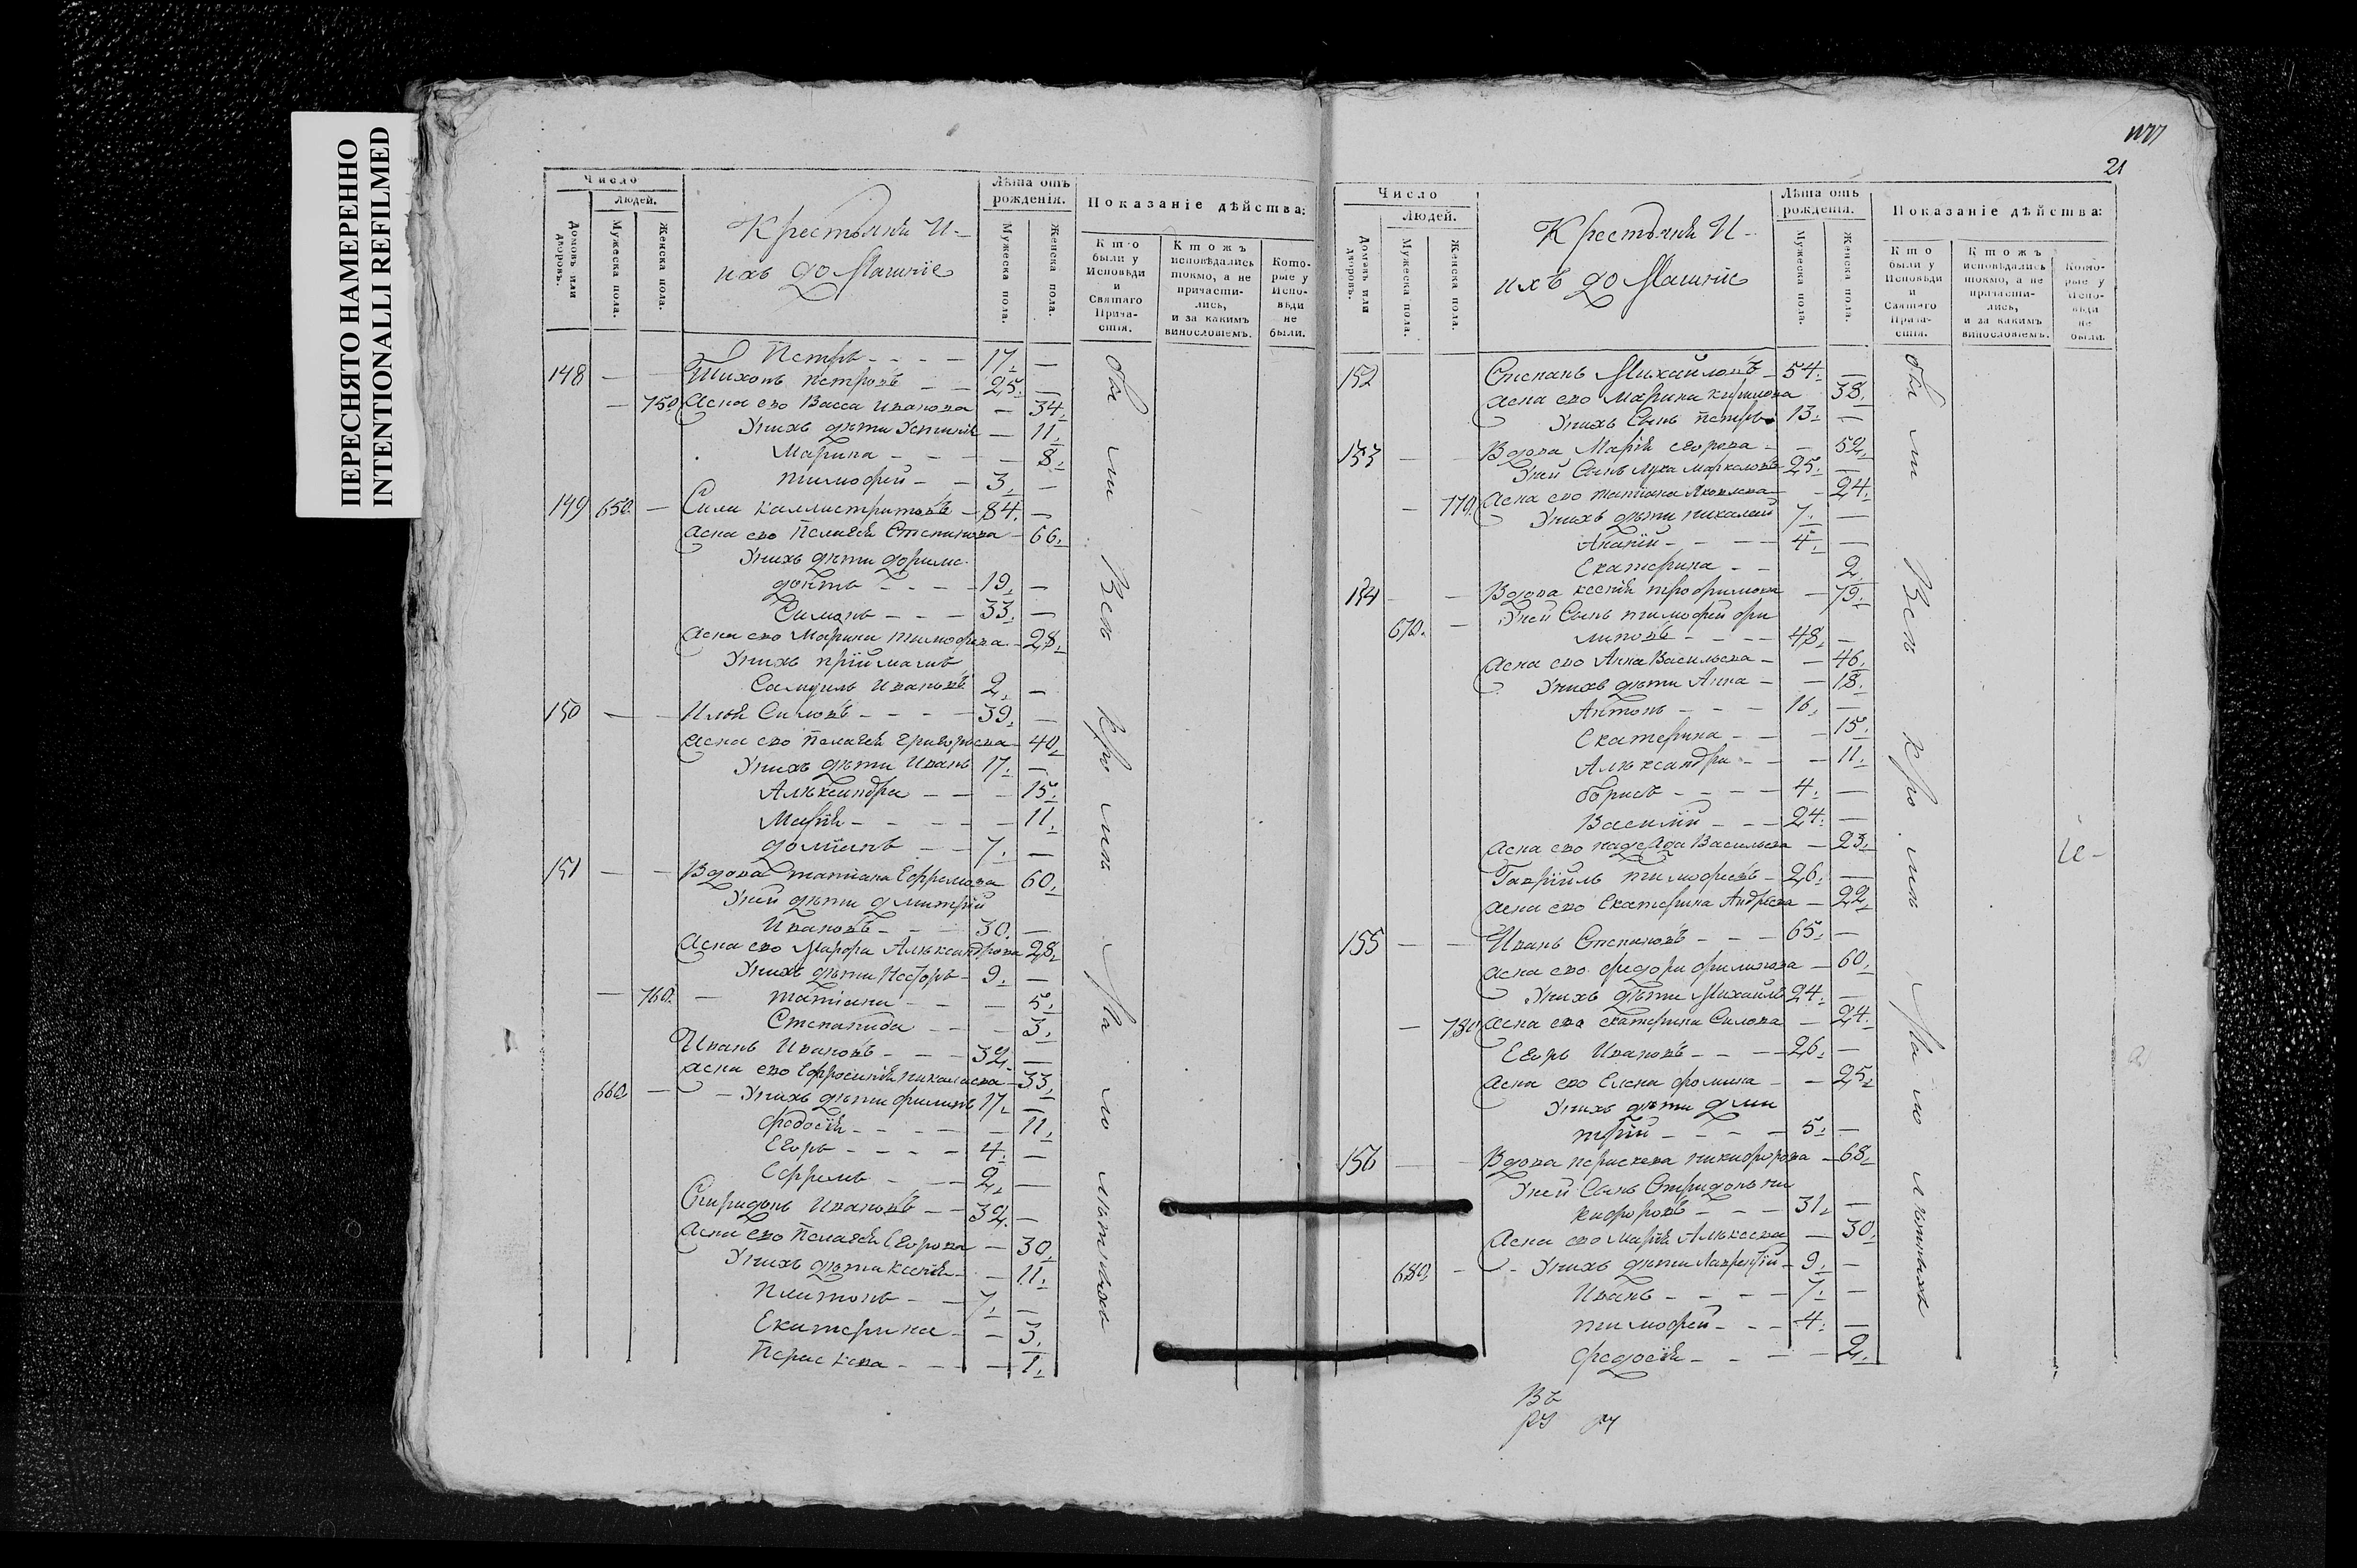 ПЕРЕСНЯТО НАМЕРЕННО
INTENTIONALLI REFILMED
21
Число
Людей.
Домовъ или дворовъ.
Мужеска пола.
Женска пола.
Крестьянѣ И-
ихъ домашнiе
Лѣта отъ рожденiя.
Мужеска пола.
Женска пола.
Показанiе дѣйства:
Кто были у Исповѣди и Святаго Причастiя.
Ктожъ исповѣдались токмо, а не причастились, и за какимъ винословiемъ.
Которые у Исповѣди не были.
Петръ - - - - 17. —
148 — — Тихонъ Петровъ - - 25. —
— 750 Жена ево Васса Иванова — 34.
Унихъ дѣти Устинiя — 11.
Марина - - - — 8.
Тимофей - - 3. —
149 650. — Сила Каллистратовъ - 84. —
Жена ево Пелагея Степанова - 66.
Унихъ дѣти
- - - - 19. —
Симонъ - - - 33. —
Жена ево Марина Тимофеева - 28.
Унихъ прiймашъ
Самуилъ Ивановъ 2. —
150 — — Илья Силовъ - - - - 39. —
Жена ево Пелагея Григорьева - 40.
Унихъ дѣти Иванъ 17. —
Алѣксандра - - - 15.
Марiя - - - - - 11.
- - 7. —
151 — — Вдова Татiана Ефремова 60.
Уней дѣти Дмитрiй
Ивановъ - - - 30. —
Жена ево Марфа Алѣксандрова 28.
Унихъ дѣти Несторъ - 9. —
— 760. — Татiана - - — 5.
Степанида - - - 3.
Иванъ Ивановъ - - - 32. —
Жена ево Ефросинiя Николаева - 33.
660 — - Унихъ дѣти Филипъ 17. —
Феодосiя - - - - — 11.
Егоръ - - - - 4. —
Ефремъ - - - 2. —
Спиридонъ Ивановъ - - 32. —
Жена ево Пелагея Егорова — 30.
Унихъ дѣти Ксенiя - - 11.
Платонъ - - 7. —
Екатерина - - 3.
Параскева - - - — 1.
бы ли Всѣ Кро мѣ Ма ло лѣтныхъ
Число
Людей.
Домовъ или дворовъ.
Мужеска пола.
Женска пола.
Крестьянѣ И-
ихъ домашнiе
Лѣта отъ рожденiя.
Мужеска пола.
Женска пола.
Показанiе дѣйства:
Кто были у Исповѣди и Святаго Причастiя.
Ктожъ исповѣдались токмо, а не причастились, и за какимъ винословiемъ.
Которые у Исповѣди не были.
152 Степанъ Михайловъ - 54. —
Жена ево Марина Кирилова 38.
Унихъ Сынъ Петръ 13. —
153 — — Вдова Марiя Егорова - — 52.
Уней Сынъ Лука 25. —
— 770. Жена ево Татiана Яковлева - 24.
Унихъ дѣти Николай 7. —
Ананiй - - - - 4. —
Екатерина - - 2.
154 — — Вдова Ксенiя Трофимова — 79.
670. — Уней Сынъ Тимофей Фи
липовъ - - - - 48. —
Жена ево Анна Васильева - — 46.
Унихъ дѣти Анна - — 18.
Антонъ - - - 16. —
Екатерина - - — 15.
Алѣксандра - - — 11.
Борисъ - - - - 4. —
Василiй - - - 24. —
Жена ево Надежда Васильева — 23.
Гаврiилъ Тимофеевъ - 26. —
Жена ево Екатерина Андреева — 22.
155 — — Иванъ Степановъ - - - 65. —
Жена ево Федора Филипова — 60.
Унихъ дѣти Михайлъ 24. —
— 780 Жена ево Екатерина Силова — 24.
Егоръ Ивановъ - - - 26. —
Жена ево Елена Фомина - — 25.
Унихъ дѣти Дми
трiй - - - - 5. —
156 — — Вдова Параскева Никифорова — 68.
Уней Сынъ Спиридонъ Ни
кифоровъ - - - 31. —
Жена ево Марiя Алѣксеева — 30.
680. - - Унихъ дѣти Лаврентiй - 9. —
Иванъ - - - - 7. —
Тимофей - - - 4. —
Федосiя - - - - 2.
бы ли Всѣ Кро мѣ Ма ло лѣтныхъ